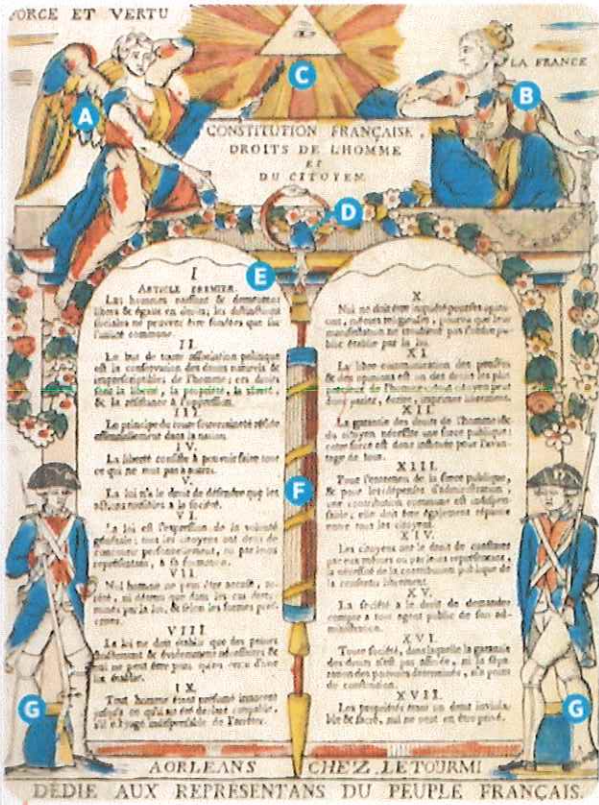 FORCE ET VERTU
C
LA FRANCE
A
B
CONSTITUTION FRANÇAISE,
DROITS DE L'HOMME
ET
DU CITOYEN.
D
E
I
ARTICLE PREMIER.
Les hommes naissent & demeurent
libres & égaux en droits; les distinctions
sociales ne peuvent être fondées que sur
l'utilité commune.
II.
Le but de toute association politique
est la conservation des droits naturels &
imprescriptibles de l'homme; ces droits
sont la liberté, la propriété, la sûreté,
& la résistance à l'oppression.
III.
Le principe de toute souveraineté réside
essentiellement dans la nation.
IV.
La liberté consiste à pouvoir faire tout
ce qui ne nuit pas à autrui.
V.
La loi n'a le droit de défendre que les
actions nuisibles à la société.
VI.
La loi est l'expression de la volonté
générale; tous les citoyens ont droit de
concourir personnellement, ou par leurs
représentans, à sa formation.
VII.
Nul homme ne peut être accusé,
ni détenu que dans les cas
par la loi, & selon les formes
VIII
La loi ne doit établir que des peines
strictement & évidemment nécessaires &
nul ne peut être puni qu'en vertu d'une
loi établie.
IX.
Tout homme étant présumé innocent
jusqu'à ce qu'il ait été déclaré coupable,
s'il est jugé indispensable de l'arrêter.
X.
Nul ne doit être inquiété pour ses opinions,
mêmes religieuses, pourvu que leur
manifestation ne trouble pas l'ordre public
établi par la loi.
XI.
La libre communication des pensées
& des opinions est un des droits les plus
précieux de l'homme; tout citoyen peut
parler, écrire, imprimer librement.
XII.
La garantie des droits de l'homme & du
citoyen nécessite une force publique;
cette force est donc instituée pour l'avantage
de tous.
XIII.
Pour l'entretien de la force publique,
& pour les dépenses d'administration,
une contribution commune est indispensable,
elle doit être également répartie
entre tous les citoyens.
XIV.
Les citoyens ont le droit de constater
par eux mêmes ou par leurs représentans,
la nécessité de la contribution publique de
la consentir librement.
XV.
La société a le droit de demander
compte à tout agent public de son administration.
XVI.
Toute société, dans laquelle la garantie
des droits n'est pas assurée, ni la séparation
des pouvoirs déterminée, n'a point
de constitution.
XVII.
Les propriétés étant un droit inviolable
& sacré, nul ne peut en être privé.
F
G
G
A ORLEANS CHEZ LETOURMI
DÉDIÉ AUX REPRÉSENTANS DU PEUPLE FRANÇAIS.